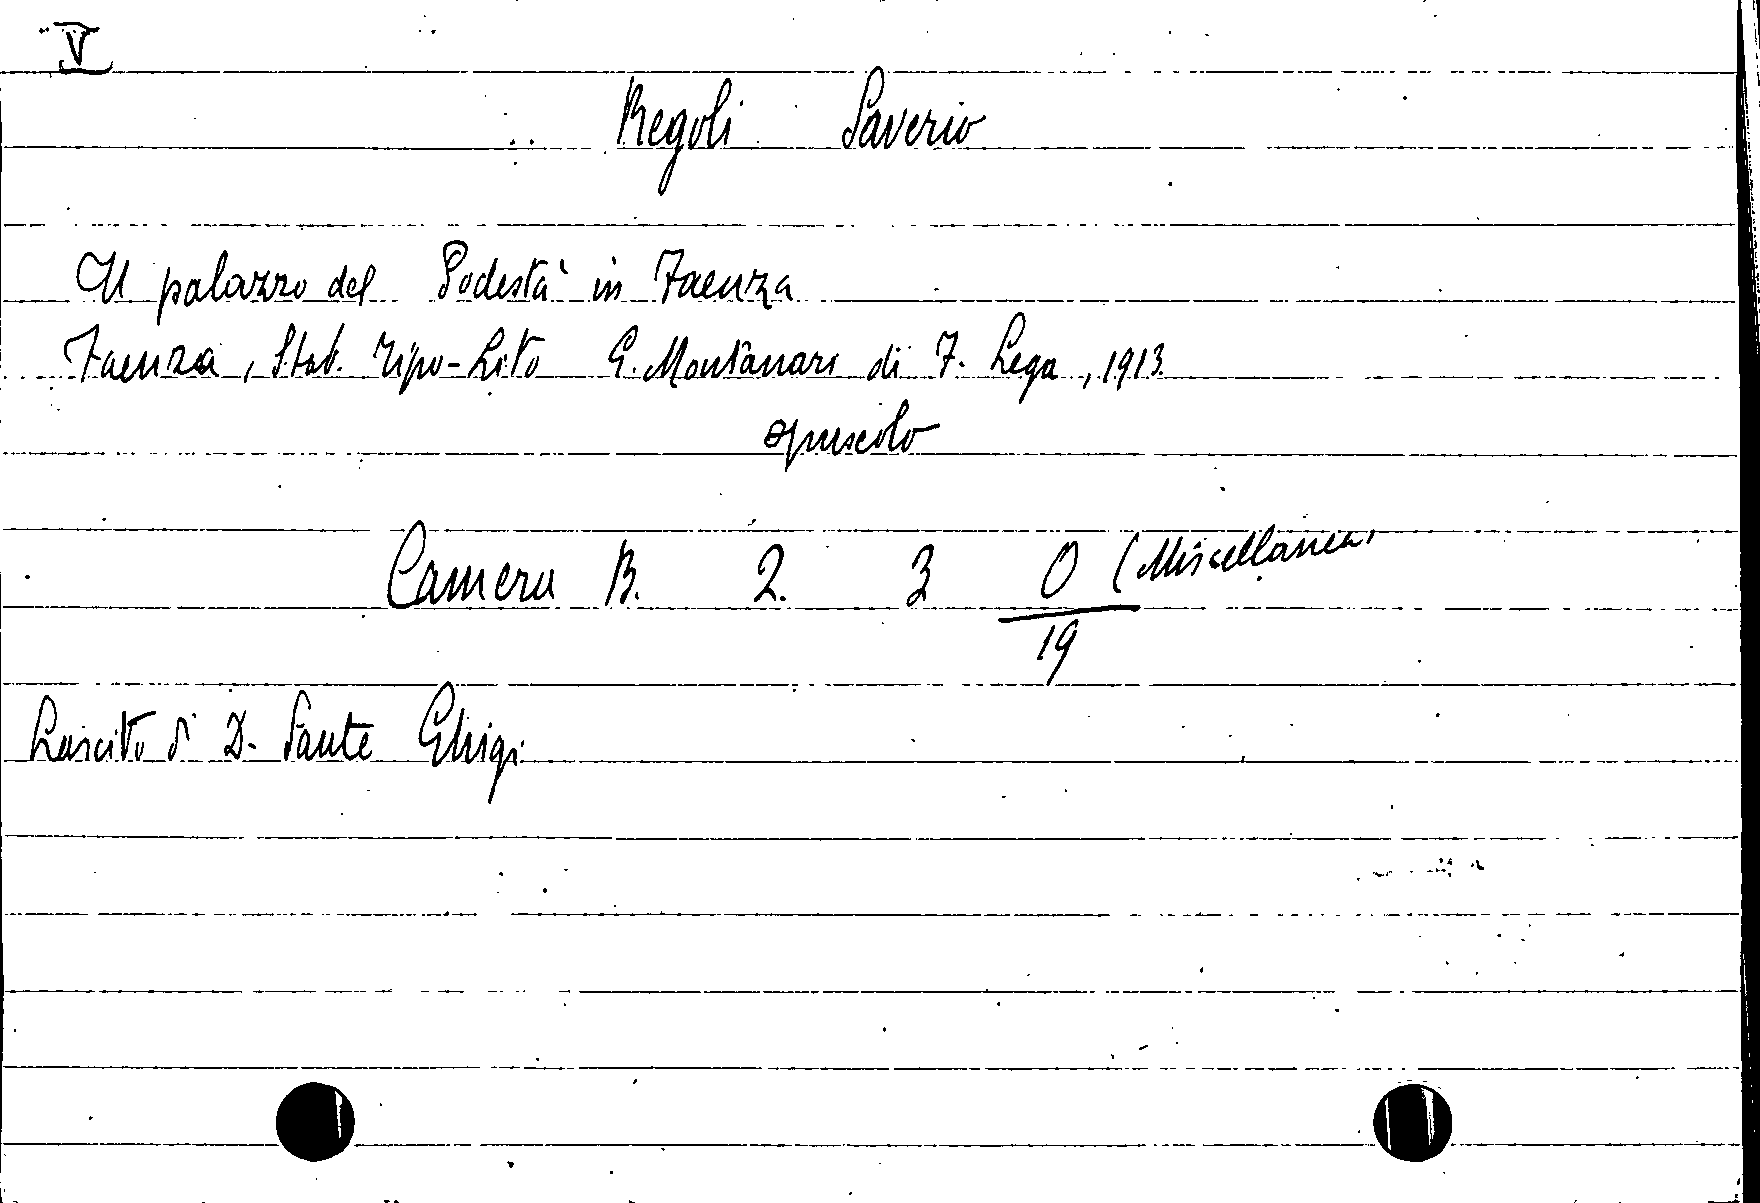 V
Regoli Saverio
Il palazzo del Podestà in Faenza
Faenza, Stab. Tipo-Lito G. Montanari di F. Lega, 1913.
opuscolo
Camera B. 2. 3 O (Miscellanea)
19
Lascito di D. Sante Ghigi